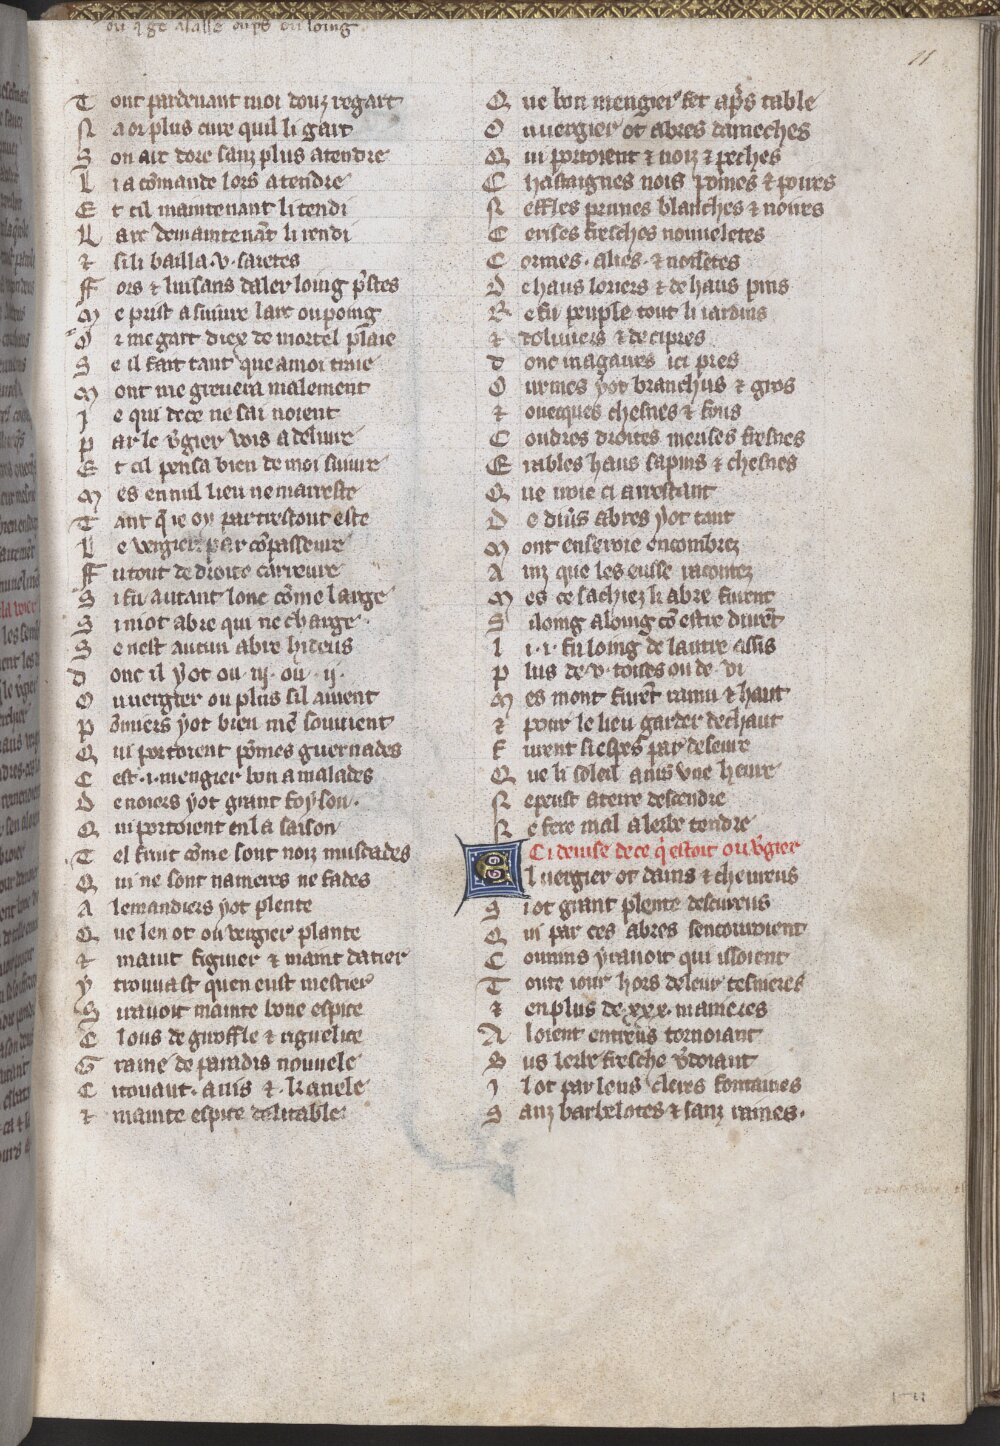 11
T out par devant moi douz regart
N a or plus cure quil li gart
S on arc dore sanz plus atendre
L i a cōmande lors a tendre
E t cil maintenant li tendi
L arc demaintenāt li rendi
⁊ si li bailla .v. saietes
Ff ors ⁊ luisans daler loing p̄stes
M e prist a suivre larc ou poing
O r me gart diex de mortel plaie
S e il fait tant que a moi traie
M ont me grevera malement
J e qui de ce ne sai noient
P ar le v̄gier vois a delivre
E t cil pensa bien de moi suivre
M es en nul lieu ne marreste
T ant q̄ ie oy partrestout este
L e vergier par cōpasseure
Ff u tout de droite carreure
S i fu autant lonc cōme large
S i niot abre qui ne charge
S e nest aucun abre hideus
d onc il y ot ou .iij. ou .ij.
O u vergier ou plus sil avient
P ōmiers y ot bien me souvient
Q ui portoient pōmes guernades
C est .i. mengier bon a malades
D e noiers y ot grant foyson.
Q ui portoient en la saison
T el fruit cōme sont noiz muscades
Q ui ne sont nameres ne fades
A lemandiers y ot plente
Q ue len ot ou vergier plante
⁊ maint figuier ⁊ maint datier
y trouvast quen eust mestier
S i avoit mainte bone espice
C lous de giroffle ⁊ riguelice
G raine de paradis nouvele
C itouaut. anis ⁊. kanele
⁊ mainte espice delitable
Q ue bon mengier fet ap̄s table
O u vergier ot abres dameches
Q ui portoient ⁊ noiz ⁊ peches
C hastaignes nois pōmes ⁊ poires
N effles prunes blanches ⁊ noires
C erises fresches nouveletes
C ormes. alies. ⁊ noisetes
D e haus loriers ⁊ de haus pins
R e fu peuple tout li iardins
⁊ doliviers ⁊ de cipres
d onc ni a gaires ici pres
O urmes y ot branchus ⁊ gros
⁊ ovecques chesnes ⁊ fous
C oudres droites
E rables haus sapins ⁊ chesnes
Q ue iroie ci arrestant
D e divs̄ abres y ot tant
M ont en seroie encombrez
A inz que les eusse racontez
M es ce sachiez li abre furent
S i loing a loing cō estre durēt
l i .i. fu loing de lautre assis
p lus de .v. toises ou de .vi
M es mont furēt ramu ⁊ haut
⁊ pour le lieu garder de chaut
F urent si espes par deseure
Q ue li soleil a nis une heure
N e peust a terre descendre
N e fere mal a lerbe tendre
Ci devise de ce q̄ estoit ou v̄gier
E l vergier ot dains ⁊ chevreus
S i ot grant plente descureus
Q ui par ces abres sencouroient
C onnins y ravoit qui issoient
T oute iour hors de leur tesnieres
⁊ en plus de .xxx. manieres
A loient entreus tornoiant
S us lerbe fresche v̄doiant
J l ot par leus cleres fontaines
S anz barbelotes ⁊ sanz raines.